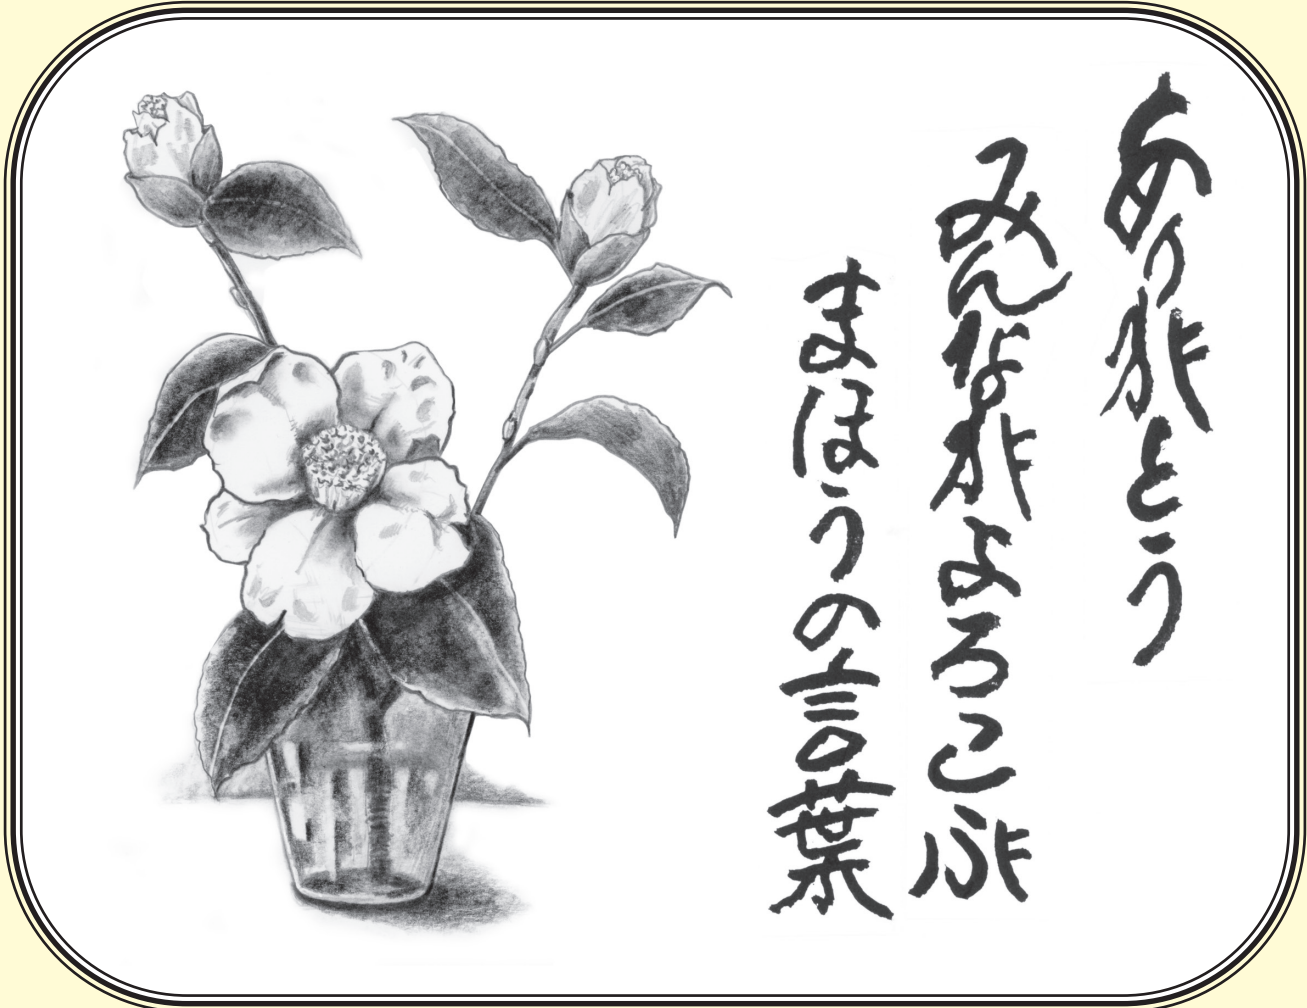 ありがとう
みんながよろこぶ
まほうの言葉